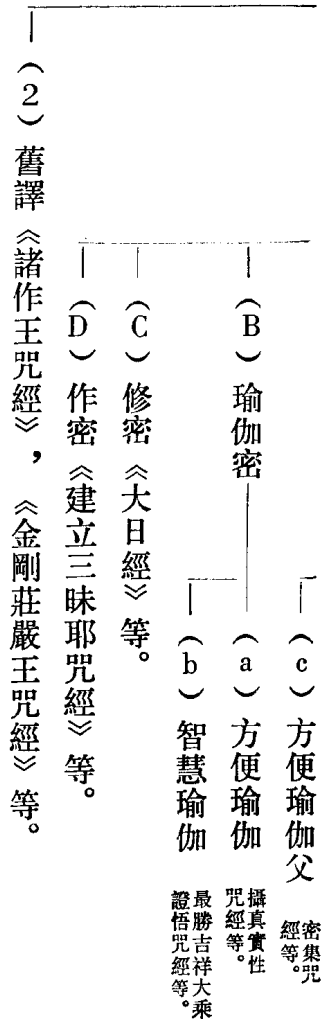 （c）方便瑜伽父 密集咒經等。
（B）瑜伽密
（a）方便瑜伽 攝真實性咒經等。
（b）智慧瑜伽 最勝吉祥大乘證悟咒經等。
（C）修密《大日經》等。
（D）作密《建立三昧耶咒經》等。
（2）舊譯《諸作王咒經》，《金剛莊嚴王咒經》等。